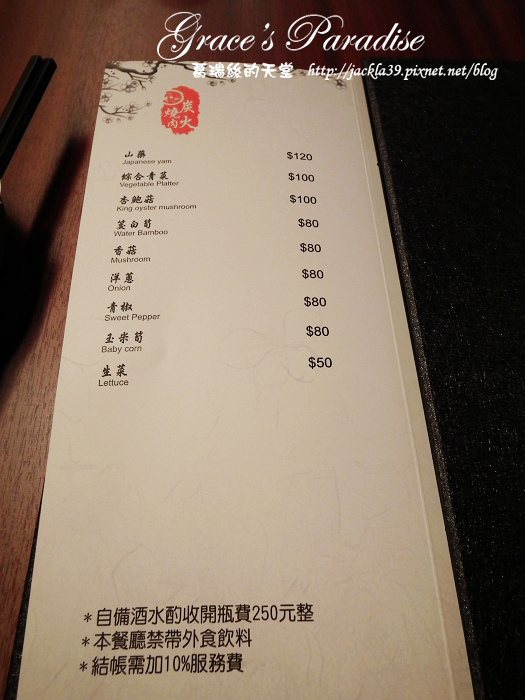 Grace's Paradise
葛瑞絲的天堂 http://jackla39.pixnet.net/blog
炭火
燒肉
山藥 $120
Japanese yam
綜合青菜 $100
Vegetable Platter
杏鮑菇 $100
King oyster mushroom
茭白筍 $80
Water Bamboo
香菇 $80
Mushroom
洋蔥 $80
Onion
青椒 $80
Sweet Pepper
玉米筍 $80
Baby corn
生菜 $50
Lettuce
＊自備酒水酌收開瓶費250元整
＊本餐廳禁帶外食飲料
＊結帳需加10%服務費